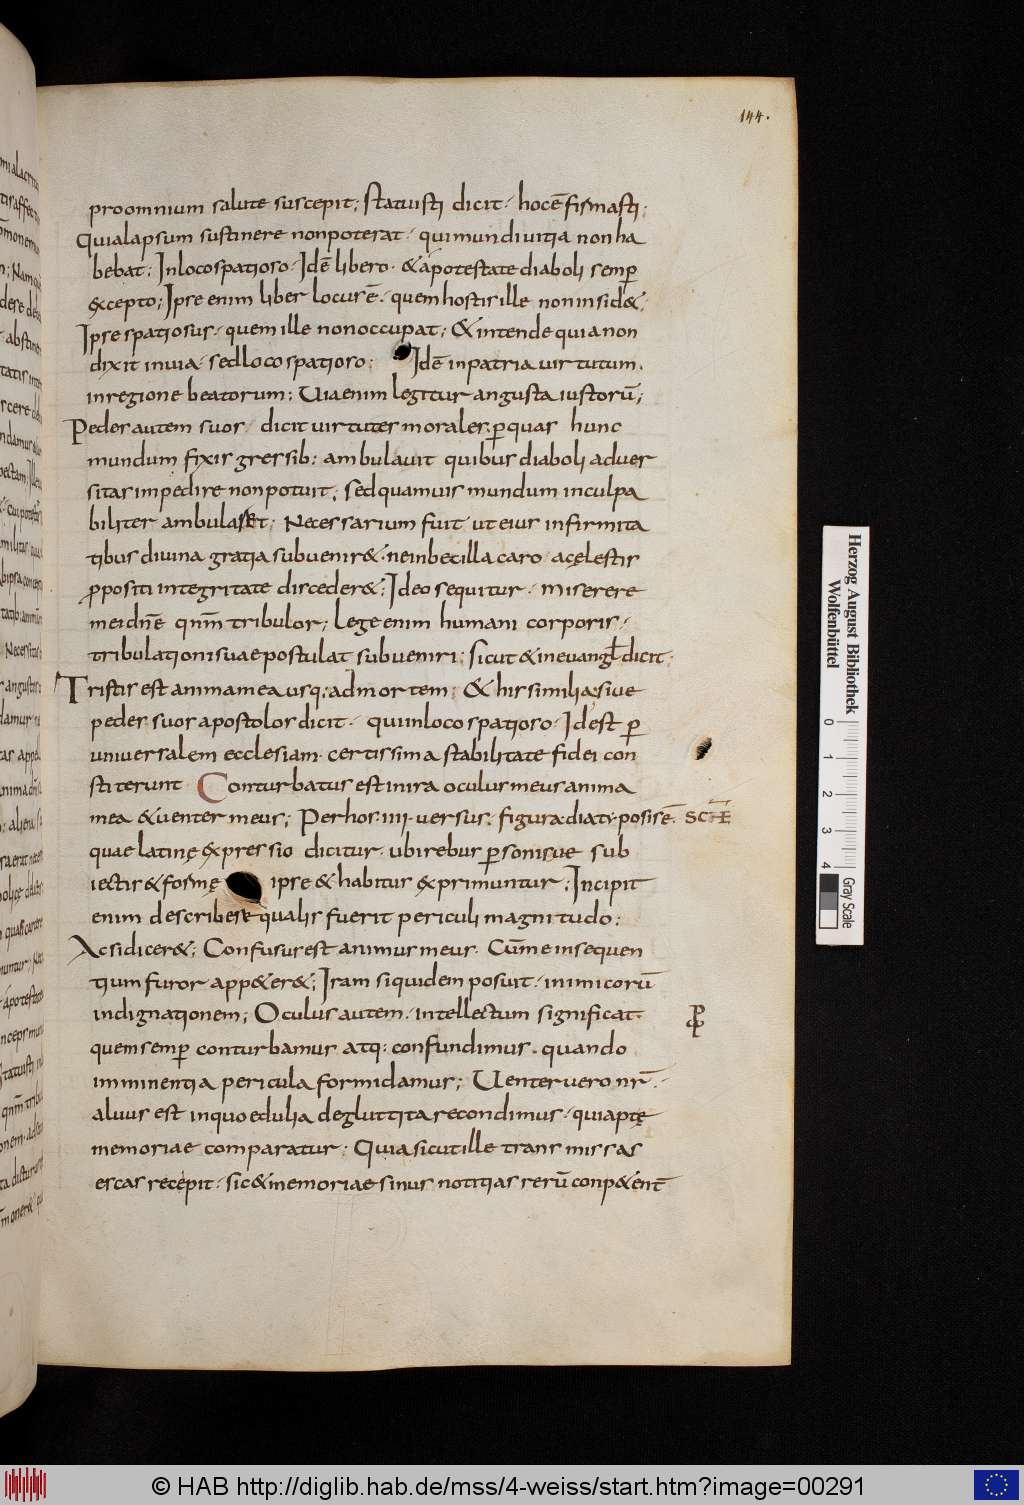 144.
pro omnium salute suscepit; statuisti dicit· hoc ē firmasti;
Quia lapsum sustinere non poterat· qui mundi uitia non ha
bebat; In loco spatioso· Idē libero· & a potestate diaboli semp̄
excepto; Ipse enim liber locus ē· quem hostis ille non insid&;
Ipse spatiosus· quem ille non occupat; & intende quia non
dixit in uia· sed loco spatioso; Idē in patria uirtutum·
in regione beatorum; Uia enim legitur angusta iustorū;
Pedes autem suos· dicit uirtutes morales· p̄ quas hunc
mundum fixis gressib; ambulauit quibus diaboli aduer
sitas impedire non potuit; sed quamuis mundum inculpa
biliter ambulass&; Necessarium fuit ut eius infirmita
tibus diuina gratia subuenir&· ne inbecilla caro· a cęlestis
p̄positi integritate disceder&; Ideo sequitur· miserere
mei dn̄e qn̄m tribulor; Lege enim humani corporis·
tribulationi suae postulat subueniri; sicut & in euangł dicit;
Tristis est anima mea usq; ad mortem; & his similia; siue
pedes suos apostolos dicit· qui in loco spatioso· Id est p̄
uniuersalem ecclesiam· certissima stabilitate fidei con
stiterunt Conturbatus est in ira oculus meus anima
mea & uenter meus; Per hos· IIII· uersus· figura diatiposis ē·
SCHE
quae latinę expressio dicitur· ubi rebus p̄sonisue sub
iectis & formę ipse & habitus exprimuntur; Incipit
enim describere qualis fuerit periculi magnitudo;
Ac si dicer&; Confusus est animus meus· Cū me insequen
tium furor appeter&; Iram siquidem posuit· inimicorū
indignationem; Oculus autem· intellectum significat·
quem semp̄ conturbamus atq; confundimus· quando
imminentia pericula formidamus; Uenter uero nr̄·
aluus est in quo edulia degluttita recondimus· qui aptę
memoriae comparatur; Quia sicut ille transmissas
escas recepit· sic & memoriae sinus notitias rerū conpetent̄
Herzog August Bibliothek
Wolfenbüttel
0 1 2 3 4
Gray Scale
© HAB http://diglib.hab.de/mss/4-weiss/start.htm?image=00291